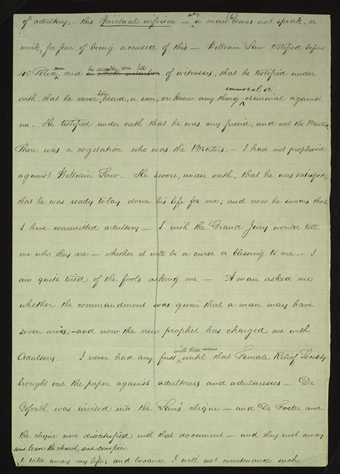 of adultery.— this Spiritual wifeism — why a man dares not speak, or
wink, for fear of being accused of this — William Law testified before
40 Policemen, and the assembly room full of witnesses, that he testified under
oath, that he never had heard, or seen or knew any thing immoral or criminal against
me. He testified under oath that he was my friend, and not the Brutus,
There was a cogitation who was the Brutus — I had not prophesied
against William Law. He swore, under oath, that he was satisfied,
that he was ready to lay down his life for me, and now he swears that
I have committed adultery — I wish the Grand Jury would tell
me who they are — whether it will be a curse or blessing to me.— I
am quite tired of the fools asking me — A man asked me
whether the commandment was given that a man may have
seven wives;— and now the new prophet has charged me with
Adultery. I never had any fuss with these men until that Female Relief Society
brought out the paper against adulterers and adulteresses — Dr
Goforth was invited into the Law's clique — and Dr Foster and
the clique were dissatisfied with that document — and they rush away
and leave the church, and conspire
to take away my life; and because I will not countenance such